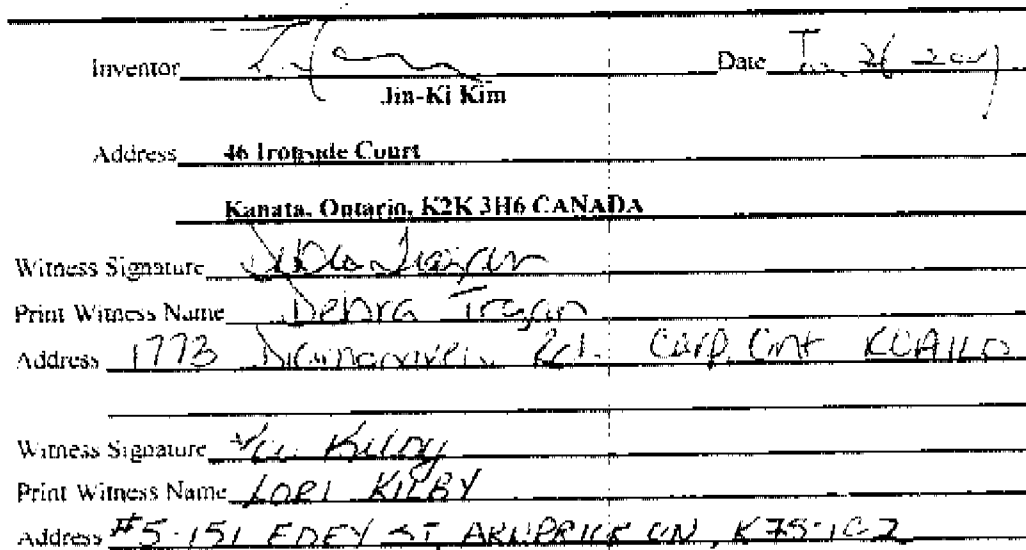 Inventor Date
Jin-Ki Kim
Address 46 Ironside Court
Kanata, Ontario, K2K 3H6 CANADA
Witness Signature
Print Witness Name Debra
Address 1773 Rd. Carp, Ont K0A1L0
Witness Signature Kilby
Print Witness Name LORI KILBY
Address #5-151 EDEY ST ARNPRIOR ON, K7S-1C2